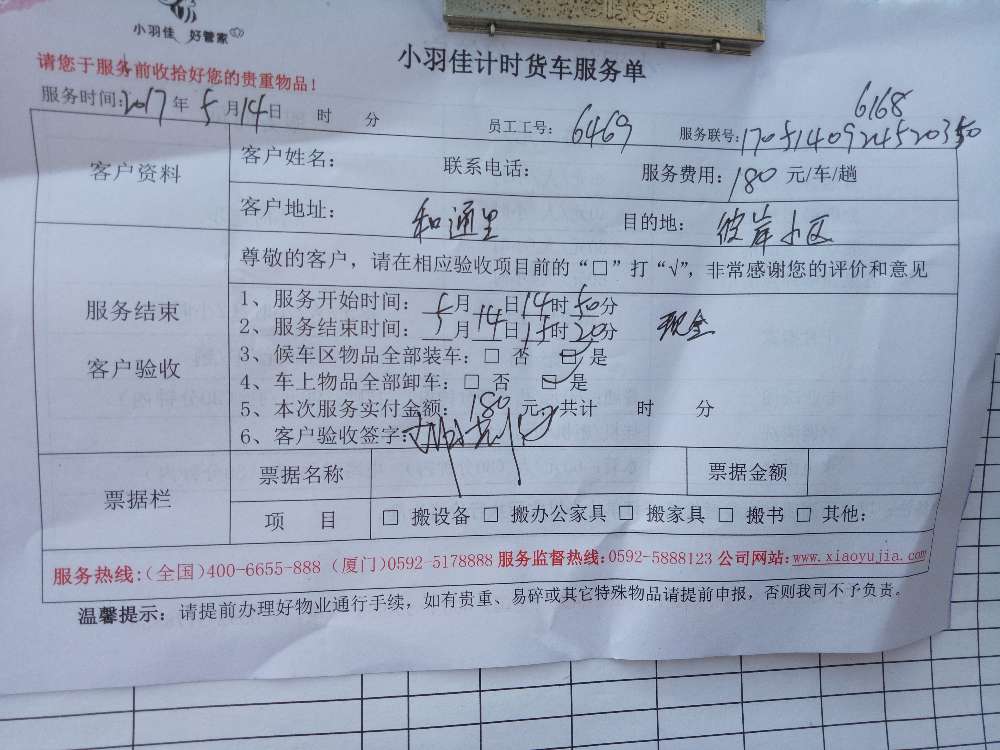 小羽佳 好管家
小羽佳计时货车服务单
请您于服务前收拾好您的贵重物品！
服务时间：2017年5月14日 时 分
6168
员工工号：6469 服务联号：1705140924520350
客户资料 客户姓名： 联系电话： 服务费用：180元/车/趟
客户地址：和通里 目的地：彼岸小区
尊敬的客户，请在相应验收项目前的“□”打“√”，非常感谢您的评价和意见
服务结束
客户验收
1、服务开始时间：5月14日14时50分
2、服务结束时间：5月14日15时20分 现金
3、候车区物品全部装车：□ 否 □ 是
4、车上物品全部卸车：□ 否 □ 是
5、本次服务实付金额：180元，共计 时 分
6、客户验收签字：
票据栏 票据名称 票据金额
项 目 □ 搬设备 □ 搬办公家具 □ 搬家具 □ 搬书 □ 其他：
服务热线：（全国）400-6655-888（厦门）0592-5178888 服务监督热线：0592-5888123 公司网站：www.xiaoyujia.com
温馨提示：请提前办理好物业通行手续，如有贵重、易碎或其它特殊物品请提前申报，否则我司不予负责。